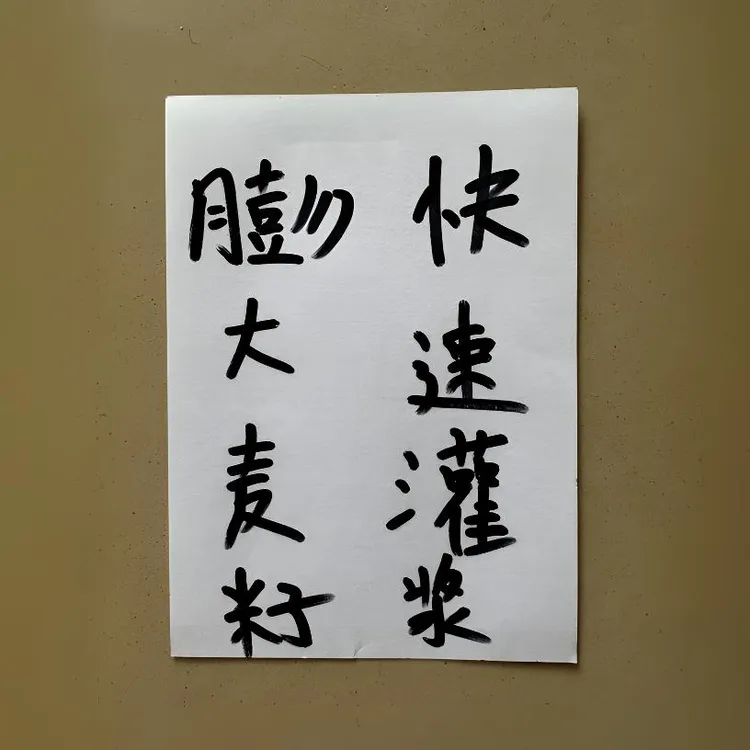 快速灌浆
膨大麦籽